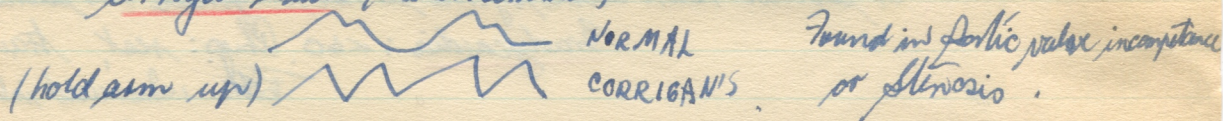 NORMAL Found in Aortic valve incompetence
(hold arm up) CORRIGAN'S. or Stenosis.